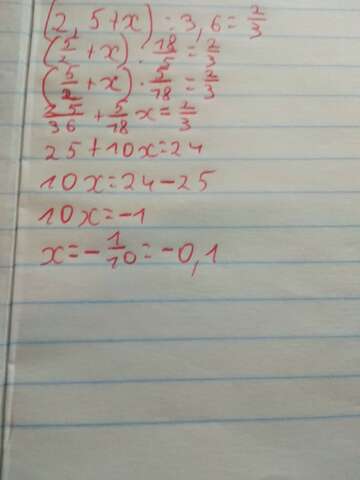 (2,5+x) : 3,6 = 2/3
(5/2 + x) : 18/5 = 2/3
(5/2 + x) · 5/18 = 2/3
25/36 + 5/18 x = 2/3
25+10x=24
10x=24-25
10x=-1
x=-1/10=-0,1